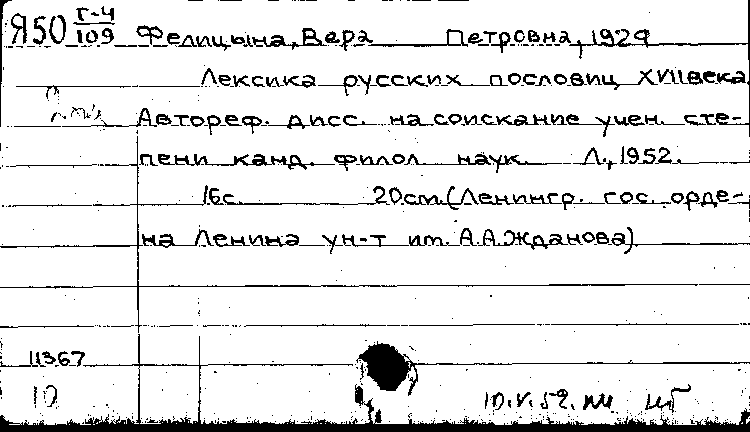 Я50 Г-4/109 Фелицына, Вера Петровна, 1924
Лексика русских пословиц XVII века.
Автореф. дисс. на соискание учен. сте-
пени канд. филол. наук. Л., 1952.
16с. 20см. (Ленингр. гос. орде-
на Ленина ун-т им. А.А.Жданова)
11367
10
10.V.52.